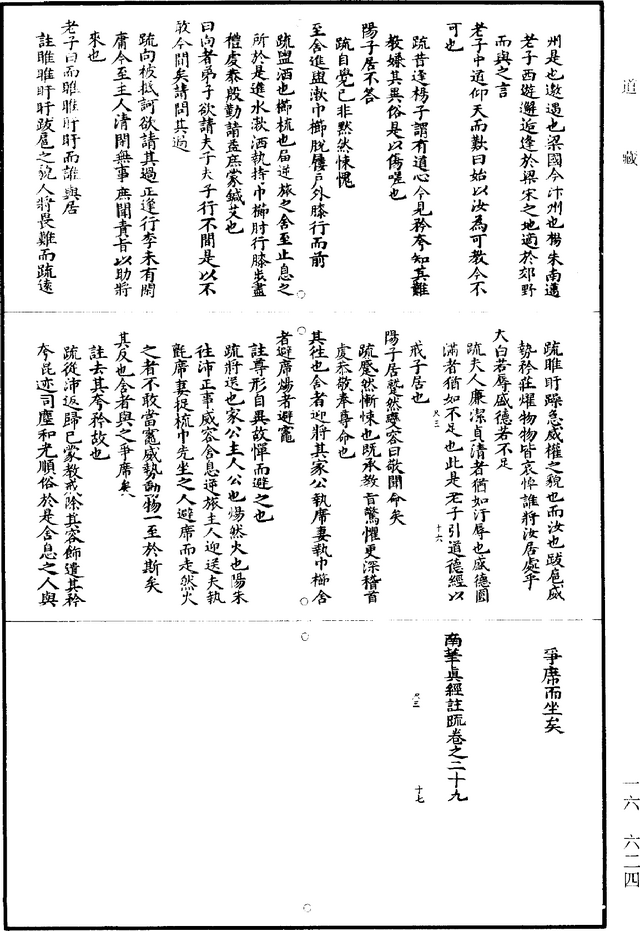 道藏
州是也邀遇也梁國今汴州也楊朱南邁
老子西遊邂逅逢於梁宋之地適於郊野
而與之言
老子中道仰天而歎曰始以汝為可教今不
可也
疏昔逢楊子謂有道心今見矜夸知其難
教嫌其異俗是以傷嗟也
陽子居不答
疏自覺已非默然悚愧
至舍進盥漱巾櫛脫屨戶外膝行而前
疏盥洒也櫛梳也屆逆旅之舍至止息之
所於是進水漱洒執持巾櫛肘行膝步盡
禮虔恭殷勤請益庶蒙鍼艾也
曰向者弟子欲請夫子夫子行不閒是以不
敢今閒矣請問其過
疏向被抵訶欲請其過正逢行李未有閑
庸今至主人清閑無事庶聞責旨以助將
來也
老子曰而睢睢盱盱而誰與居
註睢睢盱盱跋扈之貌人將畏難而疏遠
疏睢盱躁急威權之貌也而汝也跋扈威
勢矜莊燿物物皆哀悼誰將汝居處乎
大白若辱盛德若不足
疏夫人廉潔貞清者猶如汙辱也盛德圓
滿者猶如不足也此是老子引道德經以
尺三 十六
戒子居也
陽子居蹵然變容曰敬聞命矣
疏蹵然慚悚也既承教旨驚懼更深稽首
虔恭敬奉尊命也
其往也舍者迎將其家公執席妻執巾櫛舍
者避席煬者避竈
註尊形自異故憚而避之也
疏將送也家公主人公也煬然火也陽朱
往沛正事威容舍息逆旅主人迎送夫執
氈席妻捉梳巾先坐之人避席而走然火
之者不敢當竈威勢動物一至於斯矣
其反也舍者與之爭席矣
註去其夸矜故也
疏從沛返歸已蒙教戒除其容飾遣其矜
夸混迹司塵和光順俗於是舍息之人與
爭席而坐矣
南華真經註疏卷之二十九
尺三 十七
一六 六二四